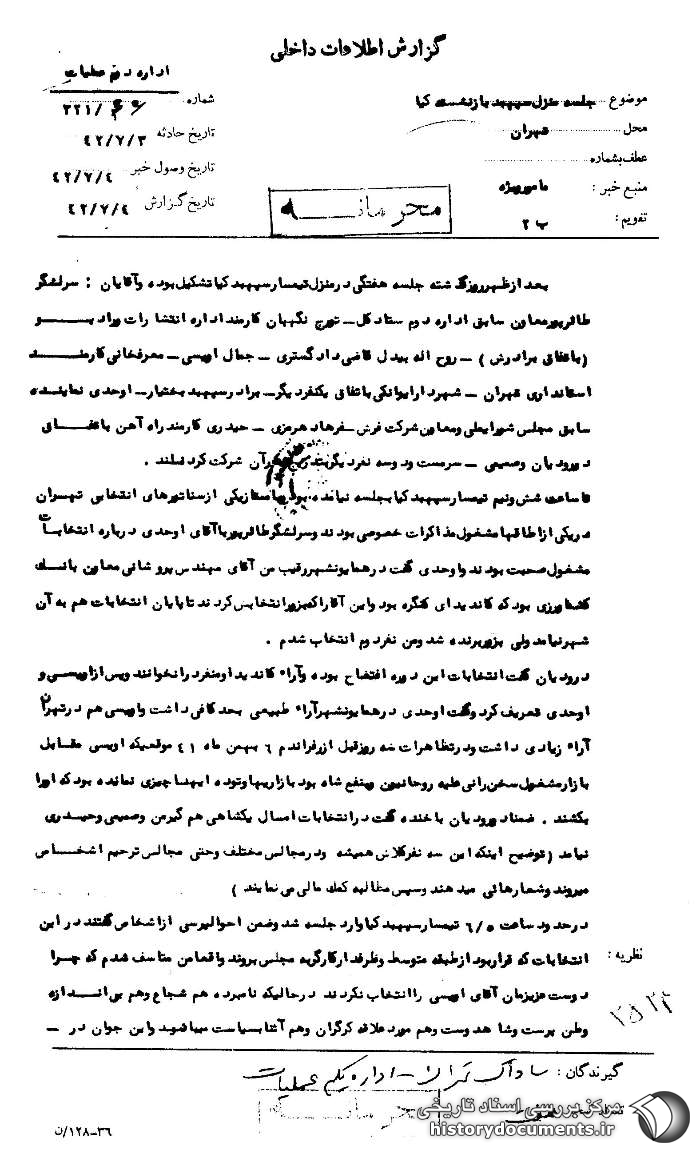 گزارش اطلاعات داخلی
اداره دوم عملیات
موضوع جلسه منزل سپهبد بازنشسته کیا
شماره ۳۲۱/
محل تهران
تاریخ حادثه ۴۲/۷/۳
عطف بشماره
تاریخ وصول خبر ۴۲/۷/٤
منبع خبر : مامور ویژه
تاریخ گزارش ۴۲/۷/٤
تقویم : ب ۲
محرمانه
بعد از ظهر روز گذشته جلسه هفتگی در منزل تیمسار سپهبد کیا تشکیل بوده و آقایان : سرلشگر
طاهرپور معاون سابق اداره دوم ستاد کل ـ تورج نگهبان کارمند اداره انتشارات رادیو
(باتفاق برادرش) ـ روح اله بیدل قاضی دادگستری ـ جمال اویسی ـ معرفخانی کارمند
استانداری تهران ـ شهردار ایوانکی باتفاق یکنفر دیگر ـ برادر سپهبد بختیار ـ اوحدی نماینده
سابق مجلس شورایملی و معاون شرکت فرش ـ فرهاد هرمزی ـ حیدری کارمند راه آهن باتفاق
درودیان وصمیمی ـ سرمست و دو سه نفر دیگر بتدریج در آن شرکت کردند .
تا ساعت شش ونیم تیمسار سپهبد کیا بجلسه نیامده بود یکی از سناتورهای انتخابی تهران
در یکی از اطاقها مشغول مذاکرات خصوصی بودند و سرلشگر طاهرپور با آقای اوحدی درباره انتخابات
مشغول صحبت بودند و اوحدی گفت در همایونشهر رقیب من آقای مهندس بروشانی معاون بانک
کشاورزی بود که کاندیدای کنگره بود و این آقا را که بزور انتخابش کردند تا پایان انتخابات هم به آن
شهر نیامد ولی بزور برنده شد و من نفر دوم انتخاب شدم .
درودیان گفت انتخابات این دوره افتضاح بوده و آراء کاندید او منفرد را نخوانند و پس از اویسی و
اوحدی تعریف کرد و گفت اوحدی در همایونشهر آراء طبیعی بحد کافی داشت و اویسی هم در تهران
آراء زیادی داشت و در تظاهرات سه روز قبل از رفراندم ۶ بهمن ماه ٤۱ موقعیکه اویسی مقابل
بازار مشغول سخنرانی علیه روحانیون و بنفع شاه بود بازاریها و توده ایها چیزی نمانده بود که او را
بکشند . ضمنا درودیان با خنده گفت در انتخابات امسال یکشاهی هم گیر من وصمیمی و حیدری
نیامد (توضیح اینکه این سه نفر کلاش همیشه در مجالس مختلف و حتی مجالس ترحیم اشخاص
میروند و شعارهائی میدهند و سپس مطالبه کمک مالی می نمایند)
در حدود ساعت ۶/۵ تیمسار سپهبد کیا وارد جلسه شد و ضمن احوالپرسی از اشخاص گفتند در این
نظریه :
انتخابات که قرار بود از طبقه متوسط و طرفدار کارگر به مجلس بروند واقعا من متاسف شدم که چرا
دوست عزیزمان آقای اویسی را انتخاب نکردند در حالیکه نامبرده هم شجاع و هم بی اندازه
وطن پرست و شاهدوست و هم مورد علاقه کرگران و هم آشنا بسیاست میباشد و این جوان در ـ
گیرندگان : ساواک تهران ـ اداره یکم عملیات
محرمانه
۳۶ـ۱۲۸/ن
مرکز بررسی اسناد تاریخی
historydocuments.ir